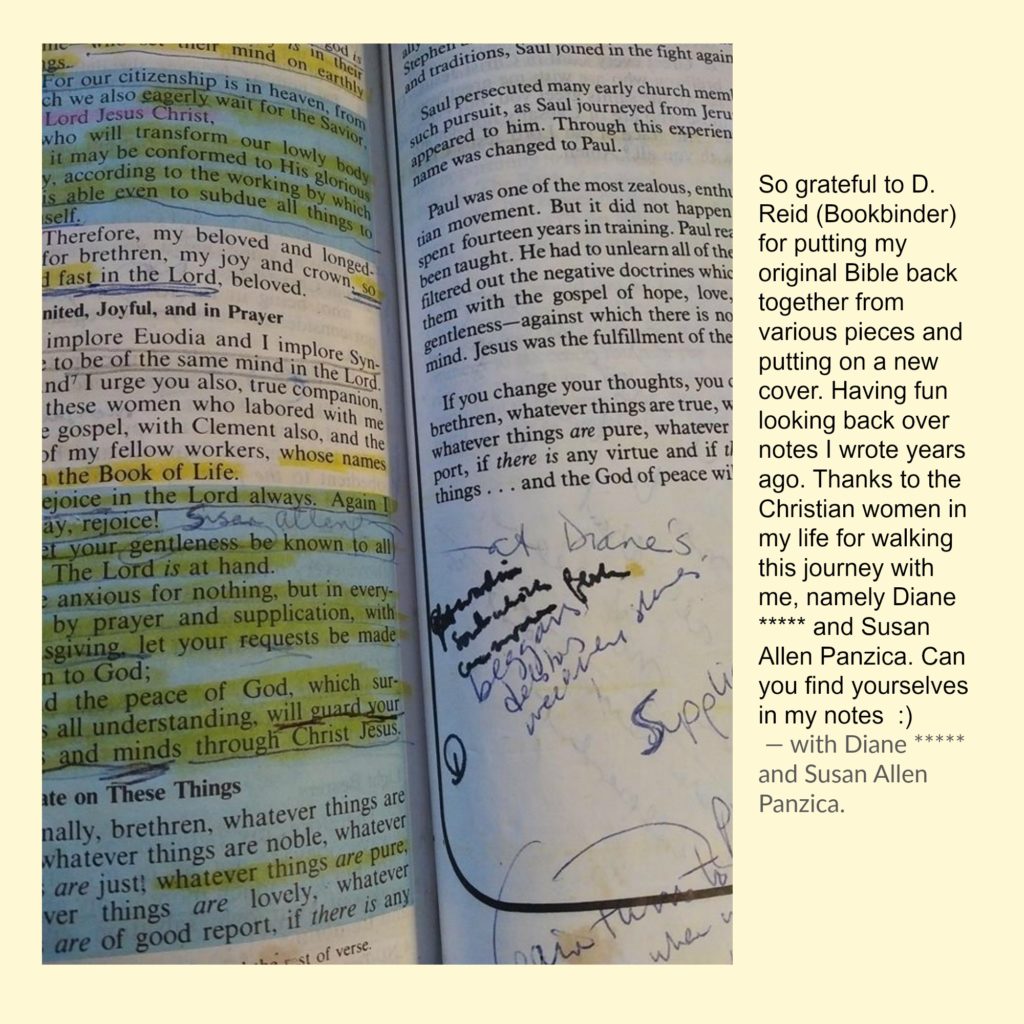 god is
me— who set their mind on earthly
is in their
ngs.
For our citizenship is in heaven, from
ch we also eagerly wait for the Savior,
Lord Jesus Christ,
who will transform our lowly body
it may be conformed to His glorious
y, according to the working by which
is able even to subdue all things to
self.
Therefore, my beloved and longed-
for brethren, my joy and crown, so
d fast in the Lord, beloved.
nited, Joyful, and in Prayer
implore Euodia and I implore Syn-
e to be of the same mind in the Lord.
nd⁷ I urge you also, true companion,
these women who labored with me
e gospel, with Clement also, and the
of my fellow workers, whose names
n the Book of Life.
ejoice in the Lord always. Again I
ay, rejoice! Susan allen
et your gentleness be known to all
The Lord is at hand.
e anxious for nothing, but in every-
by prayer and supplication, with
sgiving, let your requests be made
n to God;
d the peace of God, which sur-
s all understanding, will guard your
s and minds through Christ Jesus.
ate on These Things
nally, brethren, whatever things are
whatever things are noble, whatever
s are just, whatever things are pure,
ver things are lovely, whatever
are of good report, if there is any
st of verse.
Stephen
and traditions, Saul joined in the fight again
Saul persecuted many early church mem
such pursuit, as Saul journeyed from Jeru
appeared to him. Through this experien
name was changed to Paul.
Paul was one of the most zealous, enthu
tian movement. But it did not happen
spent fourteen years in training. Paul rea
been taught. He had to unlearn all of the
filtered out the negative doctrines whic
them with the gospel of hope, love,
gentleness—against which there is no
mind. Jesus was the fulfillment of the
If you change your thoughts, you c
brethren, whatever things are true, w
whatever things are pure, whatever
port, if there is any virtue and if th
things . . . and the God of peace wi
at Diane's
beggars
Suppli
1
turn to
when
So grateful to D.
Reid (Bookbinder)
for putting my
original Bible back
together from
various pieces and
putting on a new
cover. Having fun
looking back over
notes I wrote years
ago. Thanks to the
Christian women in
my life for walking
this journey with
me, namely Diane
***** and Susan
Allen Panzica. Can
you find yourselves
in my notes :)
— with Diane *****
and Susan Allen
Panzica.